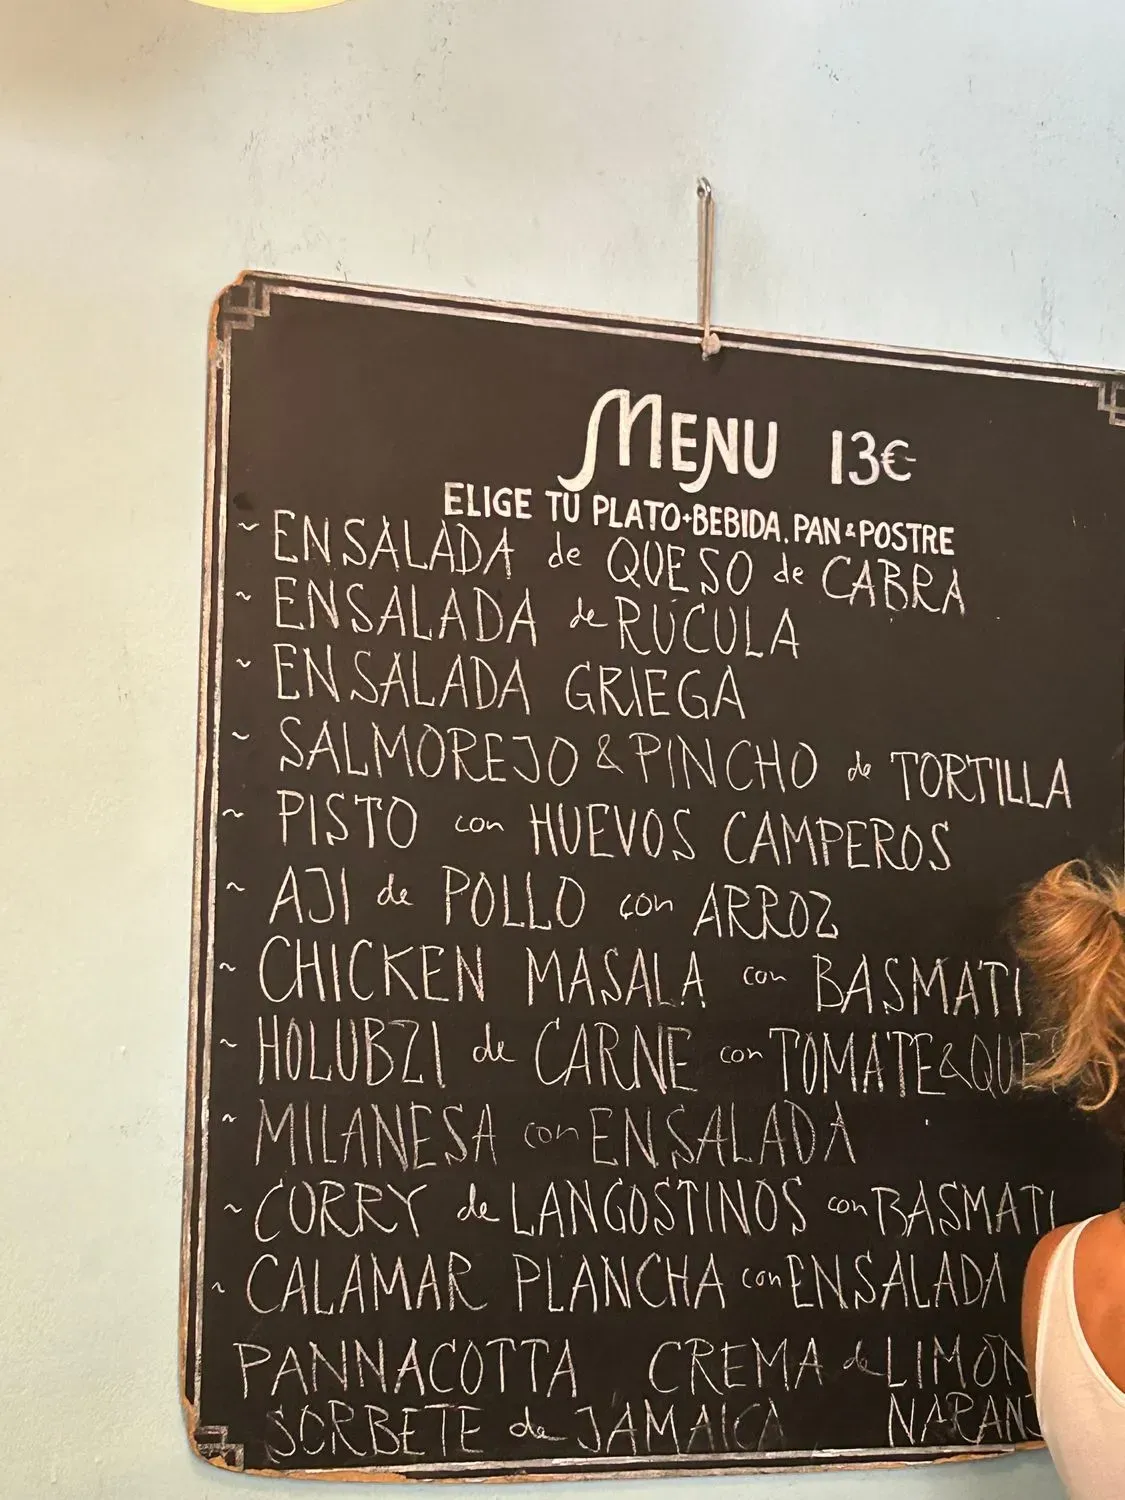 MENU 13€
ELIGE TU PLATO+BEBIDA, PAN & POSTRE
~ ENSALADA de QUESO de CABRA
~ ENSALADA de RÚCULA
~ ENSALADA GRIEGA
~ SALMOREJO & PINCHO de TORTILLA
~ PISTO con HUEVOS CAMPEROS
~ AJI de POLLO con ARROZ
~ CHICKEN MASALA con BASMATI
~ HOLUBZI de CARNE con TOMATE &
~ MILANESA con ENSALADA
~ CURRY de LANGOSTINOS con BASMATI
~ CALAMAR PLANCHA con ENSALADA
PANNACOTTA CREMA de LIMÓN
SORBETE de JAMAICA